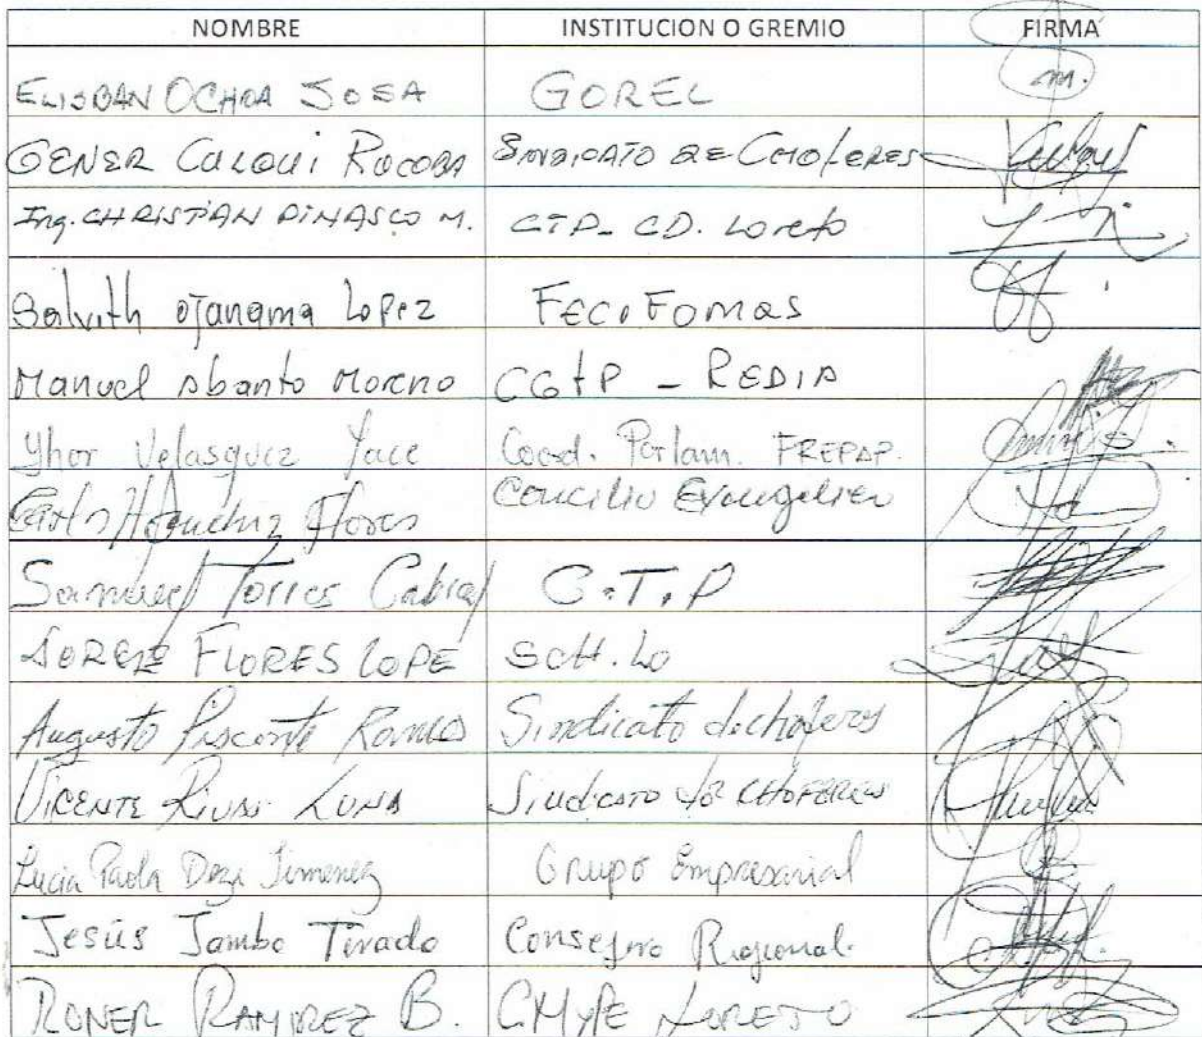 NOMBRE INSTITUCION O GREMIO FIRMA
ELISBAN OCHOA SOSA GOREL
GENER CULQUI ROCOBA SINDICATO DE CHOFERES
Ing. CHRISTIAN PINASCO M. CIP- CD. Loreto
Salvith Ojanama Lopez FECOFOMAS
Manuel Abanto Moreno CGTP - REDIA
Yhor Velasquez Yace Coord. Parlam. FREPAP.
Flores Concilio Evangelico
Samuel Torres Cabral C.T.P
JORGE FLORES LOPE SCH.Lo
Augusto Piscoente Ramos Sindicato de choferes
VICENTE LUNA Sindicato de CHOFERES
Lucia Paola Deza Jimenez Grupo Empresarial
Jesús Tambo Tirado Consejero Regional.
RONER RAMIREZ B. CMYPE LORETO